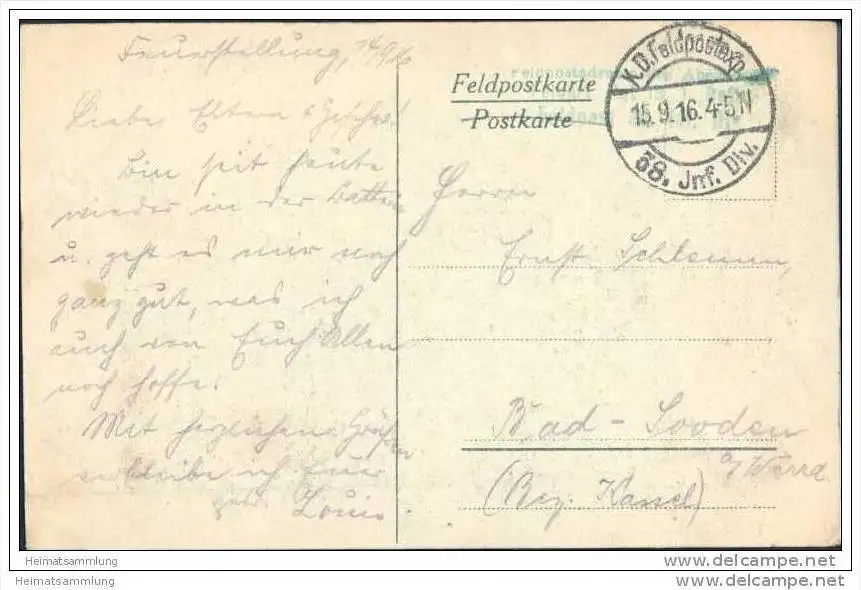 Feuerstellung, 14/9.16
Liebe Eltern u. Geschw.!
Bin seit heute
wieder in der Batterie
u. geht es mir noch
ganz gut, was ich
auch von Euch Allen
noch hoffe.
Mit herzlichen Grüßen
verbleibe ich Euer
Louis
Feldpostkarte
Postkarte
K.D. Feldpostexp.
15.9.16.4-5N
38. Jnf. Div.
Herrn
Ernst
Bad-Sooden
a/Werra
(Bez. Kassel)
Heimatsammlung
Heimatsammlung
www.delcampe.net